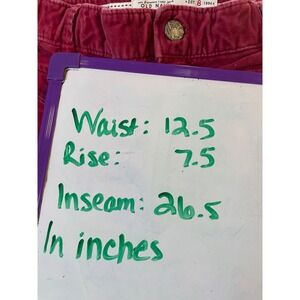 OLD NA
8
Waist: 12.5
Rise: 7.5
Inseam: 26.5
In inches